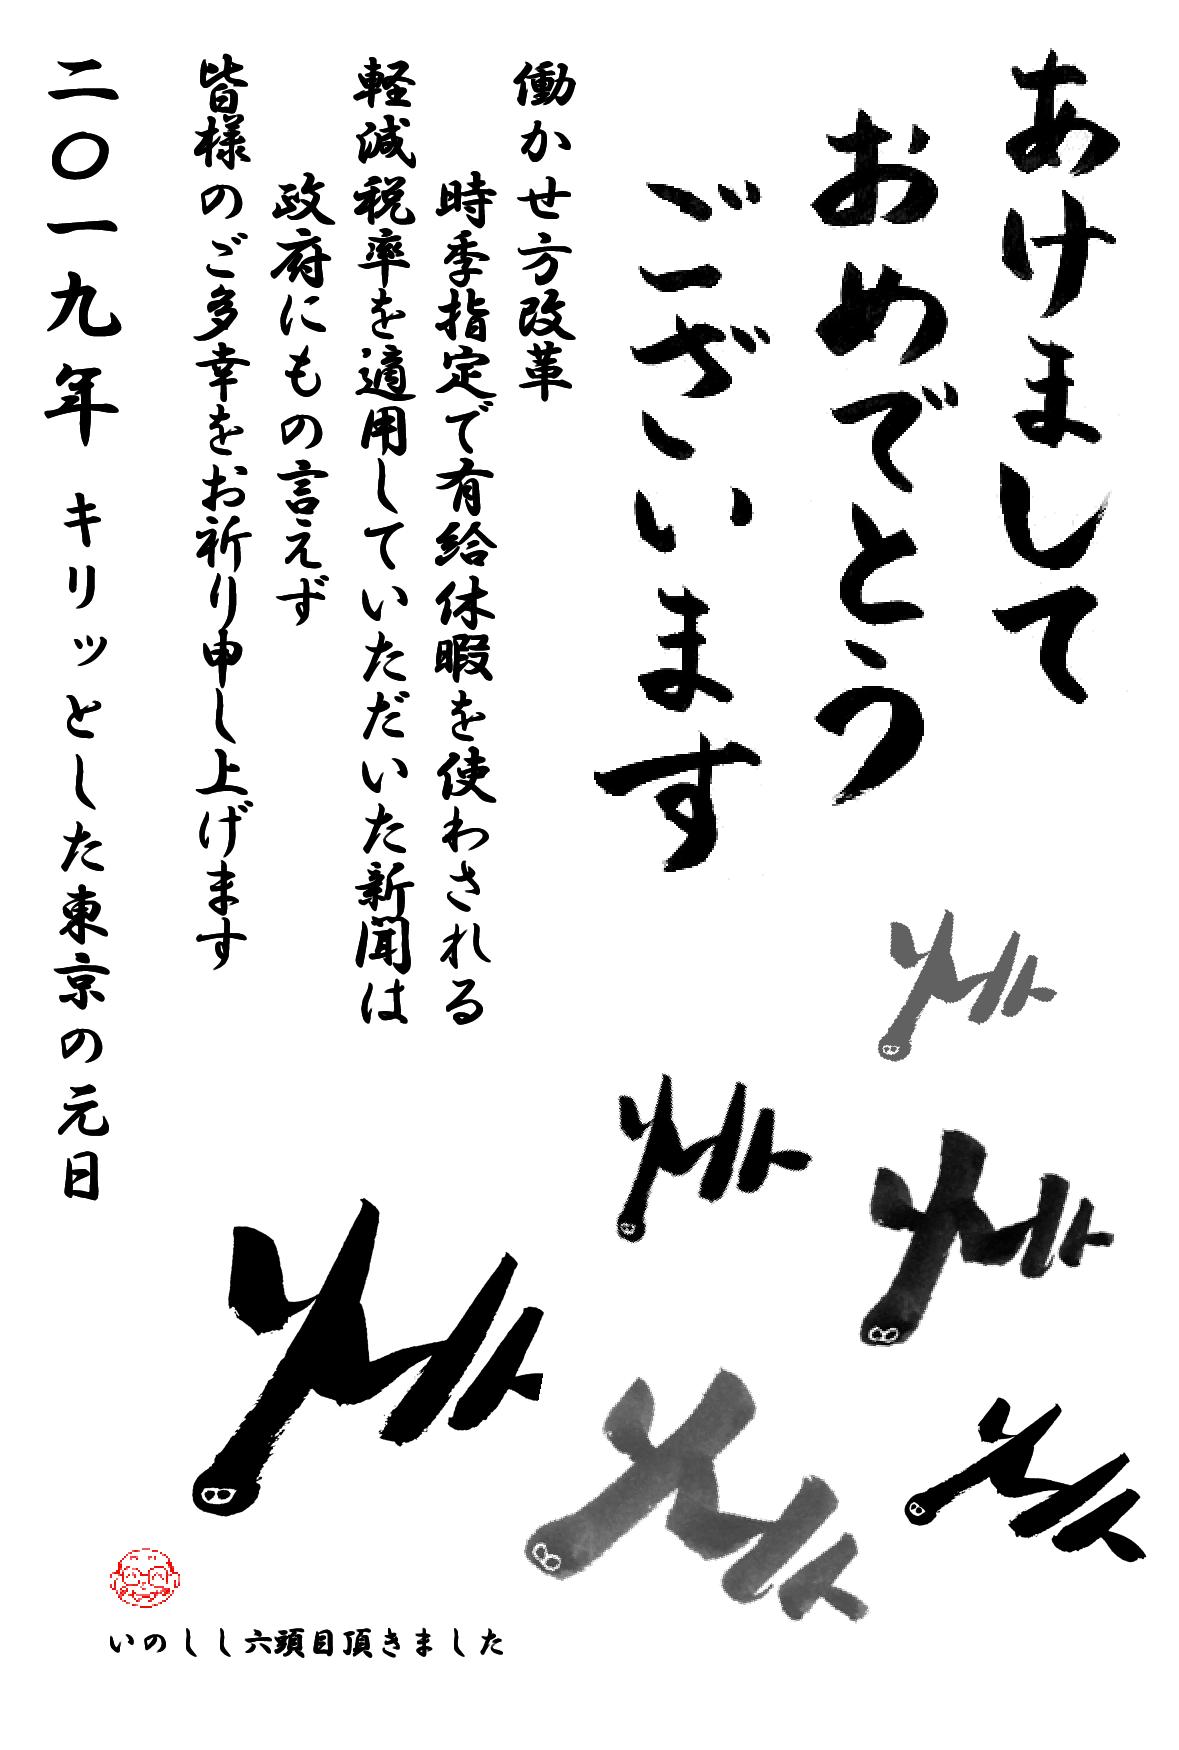 あけまして
おめでとう
ございます
働かせ方改革
時季指定で有給休暇を使わされる
軽減税率を適用していただいた新聞は
政府にもの言えず
皆様のご多幸をお祈り申し上げます
二〇一九年 キリッとした東京の元日
いのしし六頭目頂きました